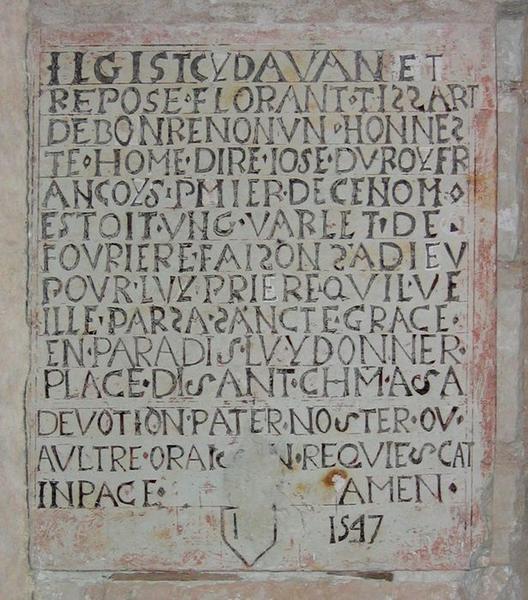 ILGIST CY DAVANET
REPOSE·FLORANT·TISSART
DE BON RENON VN·HONNES
TE·HOME·DIRE·IOSE·DV ROY FR
ANCOYS·PMIER·DE CE NOM·
ESTOIT·VNG·VARLET·DE·
FOVRIERE·FAISONS A DIEV
POVR·LVY·PRIERE QVIL·VE
ILLE·PAR SA·SANCTE GRACE·
EN·PARADIS·LVY DONNER·
PLACE·DISANT·CHM·A SA
DEVOTION·PATER·NOSTER·OV·
AVLTRE·ORAI N·REQVIESCAT
IN PACE· AMEN·
1547